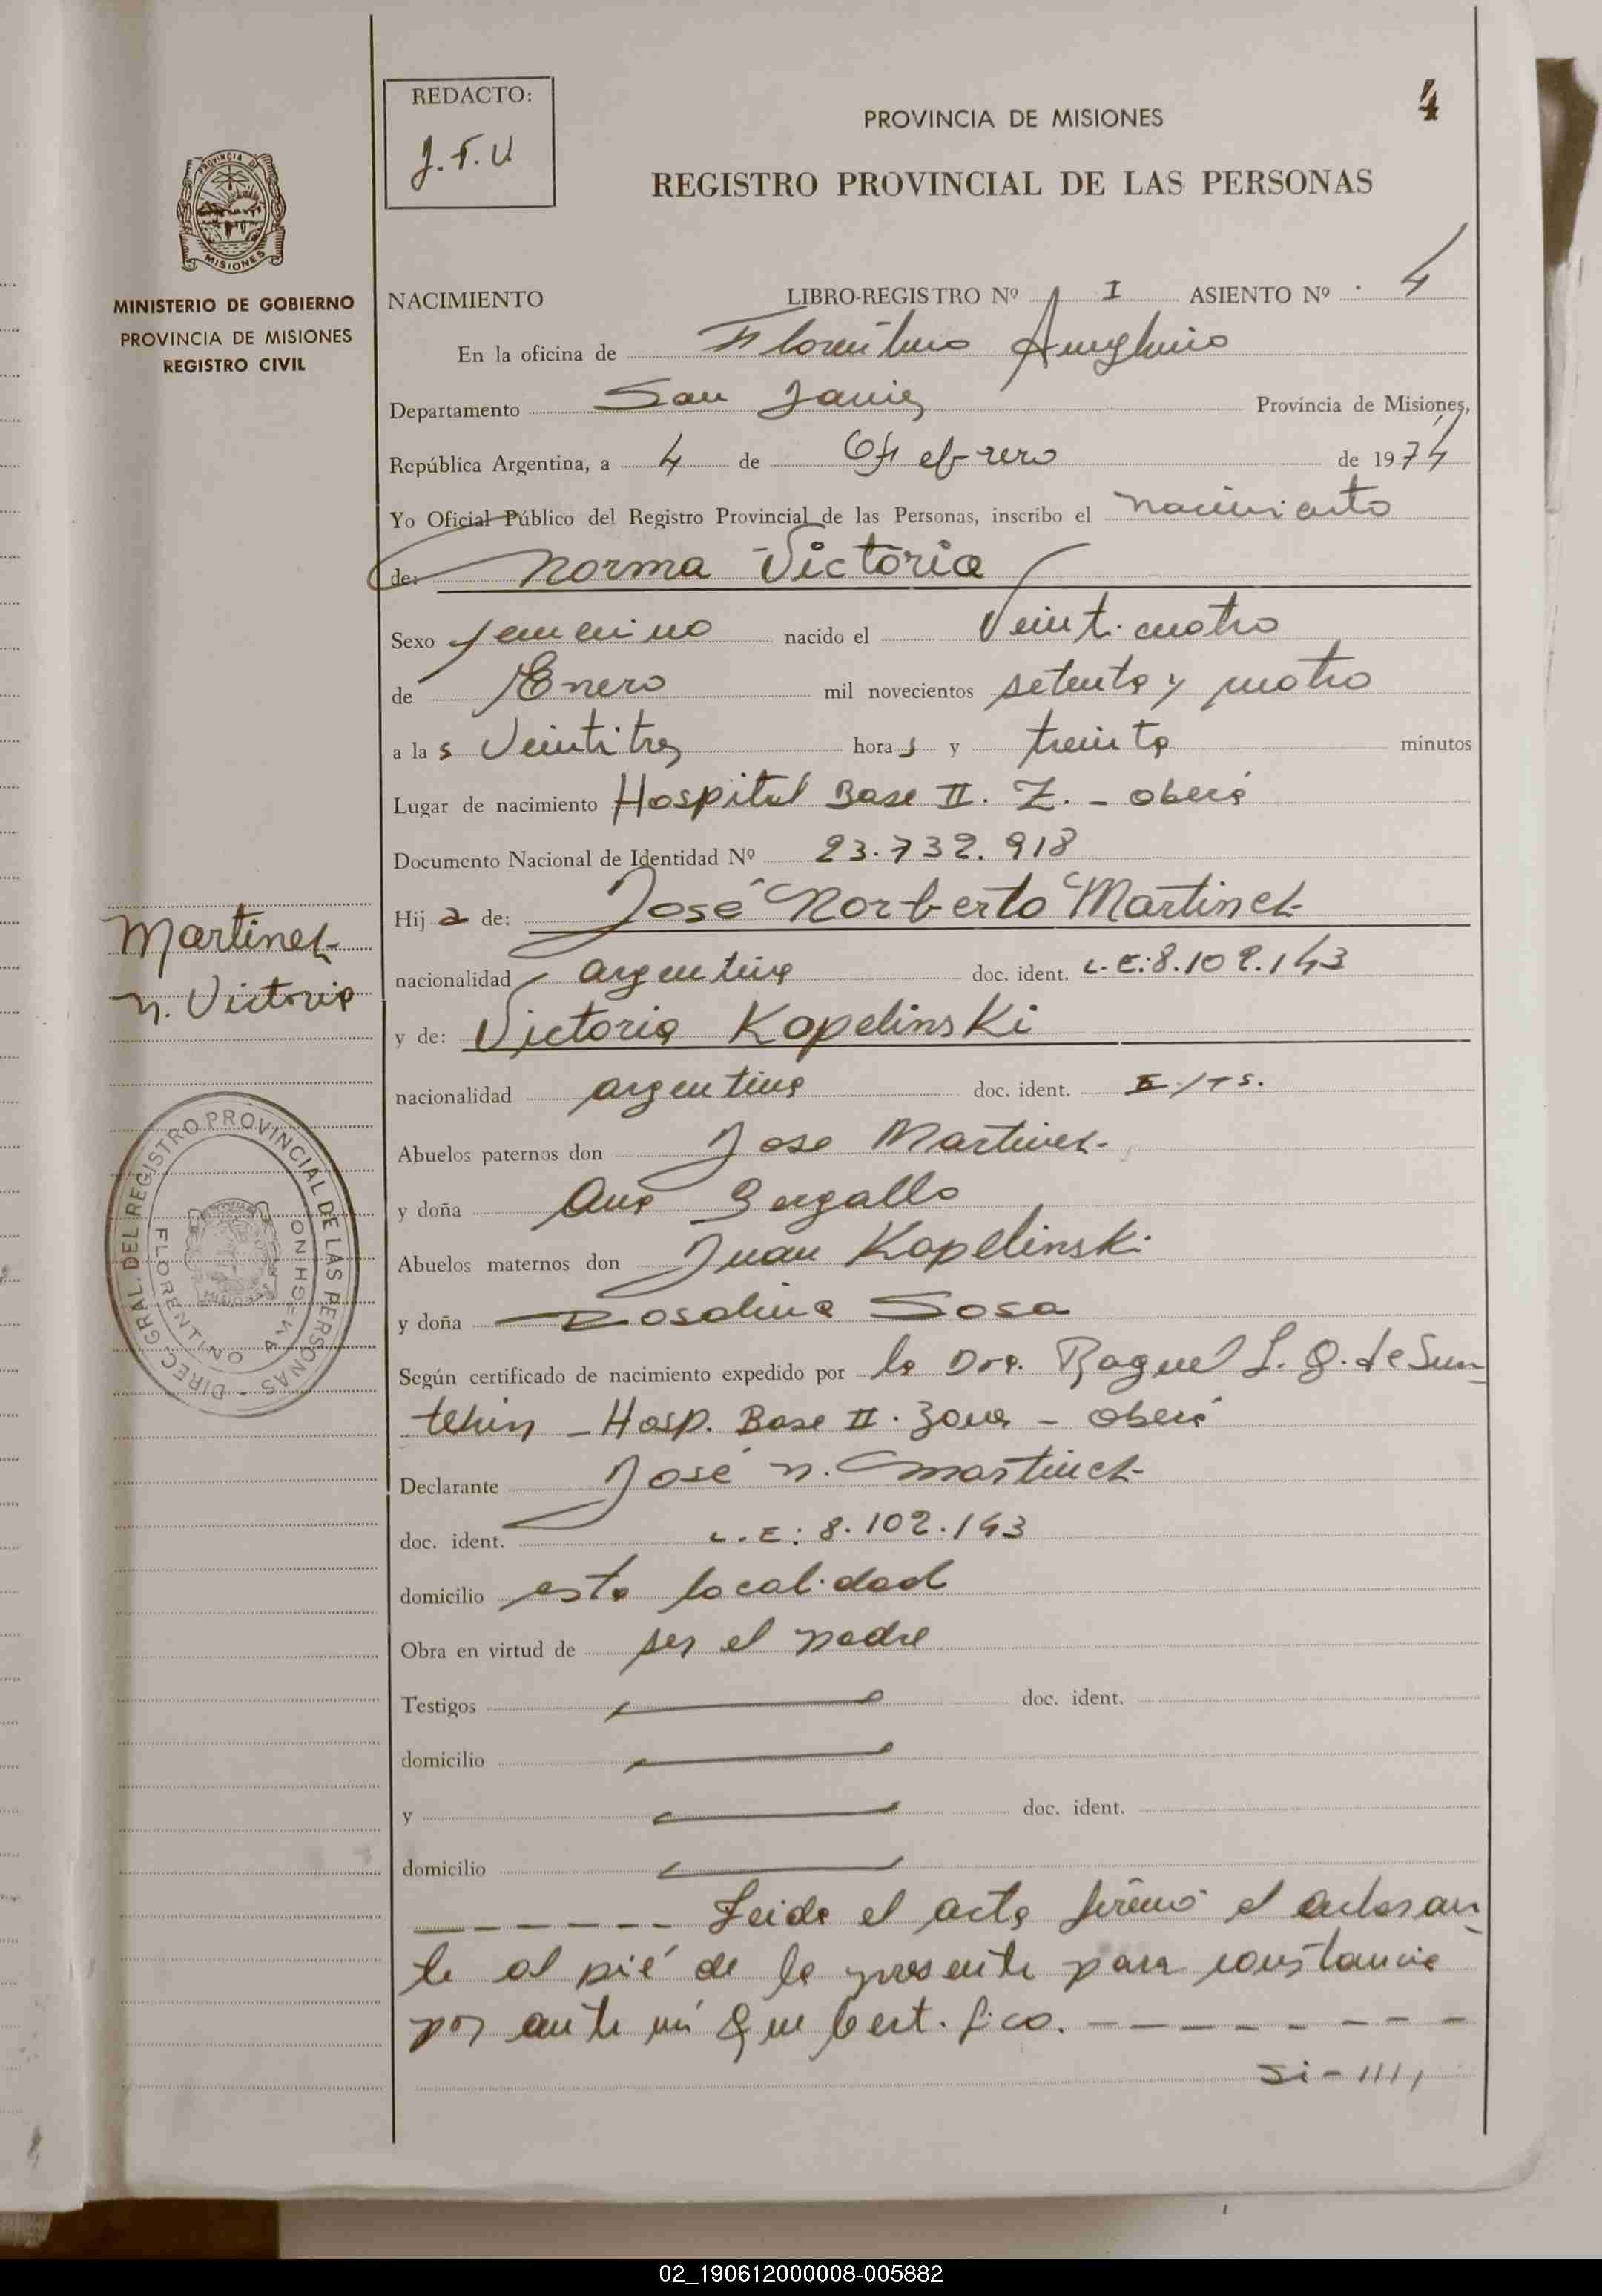 REDACTO:
J. F. V.
4
PROVINCIA DE MISIONES
REGISTRO PROVINCIAL DE LAS PERSONAS
PROVINCIA DE
MISIONES
MINISTERIO DE GOBIERNO
PROVINCIA DE MISIONES
REGISTRO CIVIL
NACIMIENTO LIBRO-REGISTRO Nº I ASIENTO Nº 4
En la oficina de Florentino Ameghino
Departamento San Javier Provincia de Misiones,
República Argentina, a 4 de Febrero de 1974
Yo Oficial Público del Registro Provincial de las Personas, inscribo el nacimiento
de: Norma Victoria
Sexo femenino nacido el Veinticuatro
de Enero mil novecientos setenta y cuatro
a las Veintitres horas y treinta minutos
Lugar de nacimiento Hospital Base II. Z. - Oberá
Documento Nacional de Identidad Nº 23.732.918
Hija de: José Norberto Martinez
nacionalidad argentina doc. ident. L.E: 8.102.143
y de: Victoria Kopelinski
nacionalidad argentina doc. ident.
Abuelos paternos don Jose Martinez
y doña Ana
Abuelos maternos don Juan Kopelinski
y doña Rosalina Sosa
Según certificado de nacimiento expedido por la Dra. Raquel
- Hosp. Base II. Zona - Oberá
Declarante José N. Martinez
doc. ident. L.E: 8.102.143
domicilio esta localidad
Obra en virtud de ser el padre
Testigos doc. ident.
domicilio
y doc. ident.
domicilio
Leida el acta firmó el declaran
te al pié de la presente para constancia
por ante mí que Certifico.
Si-////
Martinez
N. Victoria
DIREC. GRAL. DEL REGISTRO PROVINCIAL DE LAS PERSONAS -
FLORENTINO AMEGHINO
02_190612000008-005882